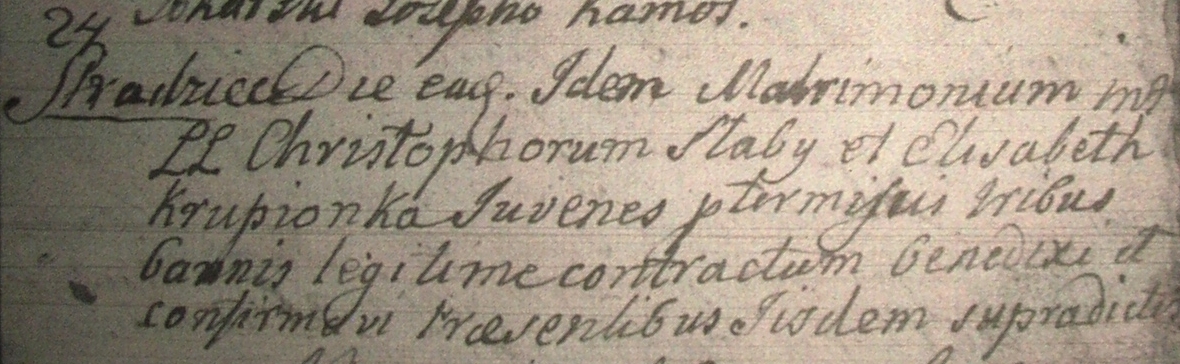 24 Josepho Ramos.
Stradziece Die eaq. Idem Matrimonium int
LL Christophorum Slaby et Elisabeth
Krupionka Iuvenes ptermissis tribus
bannis legitime contractum benedixi et
confirmavi Præsentibus Iisdem supradictis